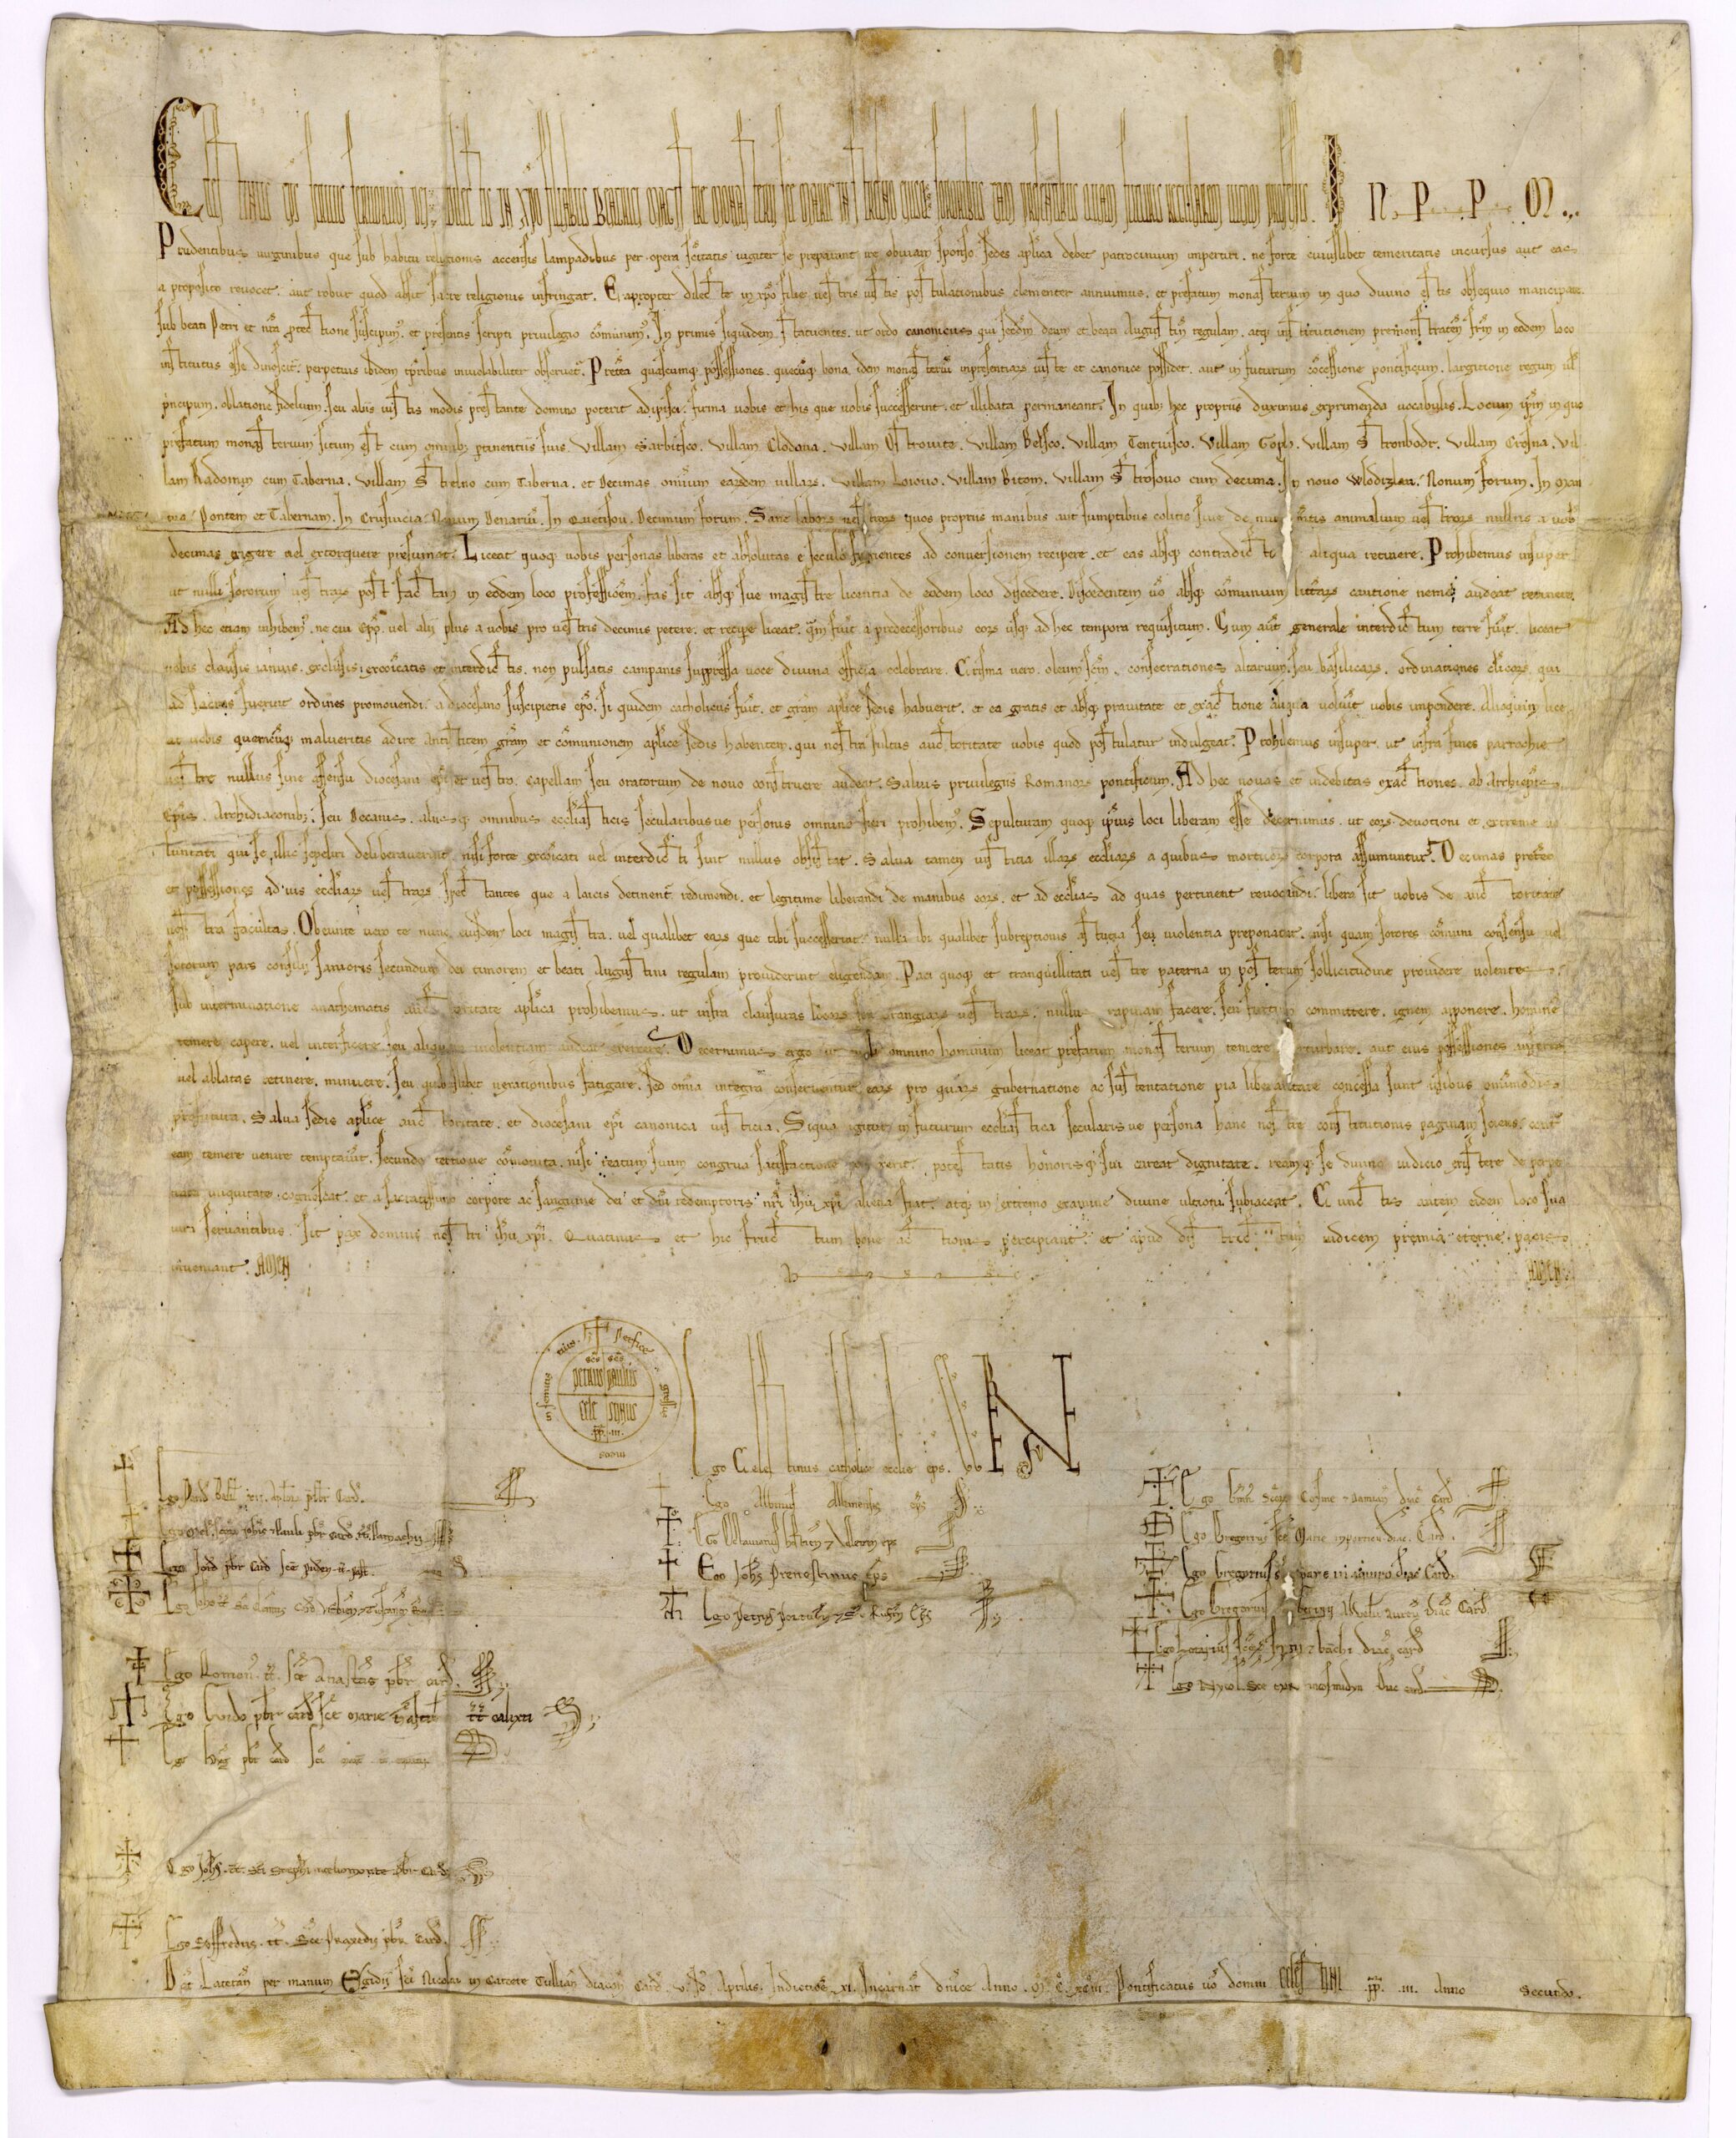 Celestinus eps servus servorum dei. Dilectis in xpo filiabus Beatrici magistre monasterii sce Marie eiusq; sororibus tam presentibus quam futuris regularem vitam professis. IN PPM
Prudentibus virginibus que sub habitu religionis accensis lampadibus per opera sctitatis iugiter se preparant ire obviam sponso. sedes aplica debet patrocinium impertiri. ne forte cuiuslibet temeritatis incursus aut eas
a proposito revocet. aut robur quod absit sacre religionis infringat. Eapropter dilecte in xpo filie vestris iustis postulationibus clementer annuimus. et prefatum monasterium in quo divino estis obsequio mancipate.
sub beati Petri et nra protectione suscipim9. et presentis scripti privilegio comunim9. In primis siquidem statuentes. ut ordo canonicus qui secdm deum et beati Augustini regulam. atq; institutionem premonstraten frm in eodem loco
institutus esse dinoscit. perpetuis ibidem tpribus inviolabiliter observet. Pretea quascumq; possessiones. quecuq; bona idem monasteriu inpresentiarz iuste et canonice possidet. aut in futurum cocessione pontificum. largitione regum ul
principum. oblatione fidelium. seu aliis iustis modis prestante domino poterit adipisci. firma vobis et his que vobis successerint. et illibata permaneant. In quib; hec propriis duximus exprimenda vocabulis. Locum ipm in quo
prefatum monasterium situm est cum omnib; ptinentiis suis. villam Sarbitsco. villam Clodana. villam Ostrovite. villam Belsco. villam Tentuisco. villam Gopl. villam Stronbodr. villam Cresna. vil
lam Radomin cum Taberna. villam Strelno cum Taberna. et Decimas omium earzdem villarz. villam Loiovo. villam Bitom. villam Strosovo cum decima. In novo Wlodizlau. Nonum forum. In Man
tua Pontem et Tabernam. In Crusuicia Nonum Denariu. In Quecisou. Decimum forum. Sane laborz vestrorz quos propriis manibus aut sumptibus colitis sive de nutrimtis animalium vestrorz nullus a vob
decimas exigere vel extorquere presumat. Liceat quoq; vobis personas liberas et absolutas e seculo fugientes ad conversionem recipere. et eas absq; contradicti aliqua retinere. Prohibemus insuper
ut nulli sororum vestrarz post factam in eodem loco professioem. fas sit absq; sue magistre licentia de eodem loco discedere. Discedentem uo absq; comunium litterarz cautione nemo audeat retinere.
Ad hec etiam inhibem9. ne cui Epo. vel alii plus a vobis pro vestris decimis petere. et recipe liceat. qm fuit a predecessoribus eorz usq; ad hec tempora requisitum. Cum aut generale interdictum terre fuit. liceat
vobis clausis ianuis. exclusis excoicatis et interdictis. non pulsatis campanis suppressa voce divina officia celebrare. Crisma vero. oleum scm. consecrationes altarium. seu basilicarz. ordinationes clicorz. qui
ad sacros fuerint ordines promovendi. a diocesano suscipietis epo. si quidem catholicus fuit. et gram aplice sedis habuerit. et ea gratis et absq; pravitate et exactione aliqua voluit vobis impendere. Alioquin lice
at vobis quemcuq; malueritis adire antistitem gram et comunionem aplice sedis habentem. qui nostra fultus auctoritate vobis quod postulatur indulgeat. Prohibemus insuper. ut infra fines parrochie
vestre nullus sine assensu diocesani epi et vestro. capellam seu oratorium de novo construere audeat. Salvis privilegiis Romanorz pontificum. Ad hec novas et indebitas exactiones. ab Archiepis
Epis. Archidiaconib;. seu Decanis. aliisq; omnibus ecclasticis secularibusve personis omnino fieri prohibem9. Sepulturam quoq; ipius loci liberam esse decernimus. ut eorz devotioni et extreme vo
luntati qui se illic sepeliri deliberaverint. nisi forte excoicati vel interdicti sint nullus obsistat. Salva tamen iusticia illarz eccliarz a quibus mortuorz corpora assumuntur. Decimas pretea
et possessiones ad ius eccliarz vestrarz spectantes que a laicis detinent redimendi. et legitime liberandi de manibus eorz. et ad ecclias ad quas pertinent revocandi. libera sit vobis de auctoritate
nostra facultas. Obeunte vero te nunc eiusdem loci magistra. vel qualibet earz que tibi successerint. nulla ibi qualibet subreptionis astutia seu violentia preponatur. nisi quam sorores comuni consensu vel
sororum pars consilii sanioris secundum dei timorem et beati Augustini regulam providerint eligendam. Paci quoq; et tranquillitati vestre paterna in posterum sollicitudine providere volentes
sub interminatione anathematis auctoritate aplica prohibemus. ut infra clausuras locorz seu grangiarz vestrarz. nullus rapinam facere. seu furtum committere. ignem apponere. homine
temere capere. vel interficere seu aliquam violentiam audeat exercere. Decernimus ergo ut nulli omnino hominum liceat prefatum monasterium temere perturbare. aut eius possessiones auferre
vel ablatas retinere. minuere. seu quibuslibet vexationibus fatigare. sed omia integra conserventur. earz pro quarz gubernatione ac sustentatione pia liberalitate concessa sunt usibus omimodis
profutura. Salva sedis aplice auctoritate. et diocesani epi canonica iusticia. Siqua igitur in futurum ecclastica secularisve persona hanc nostre constitutionis paginam sciens. cont
eam temere venire temptaverit. secundo tertiove comonita. nisi reatum suum congrua satisfactione correxerit. potestatis honorisq; sui careat dignitate. reamq; se divino iudicio existere de perpe
trata iniquitate cognoscat. et a sacratissimo corpore ac sanguine dei et dni redemptoris nri ihu xpi aliena fiat. atq; in extremo examine divine ultioni subiaceat. Cunctis autem eidem loco sua
iura servantibus. sit pax domini nostri ihu xpi. Quatinus et hic fructum bone actionis percipiant. et apud districtum iudicem premia eterne pacis
inveniant. AMEN AMEN
Perfice gressus meos in semitis tuis
scs Petrus scs Paulus
Celestinus pp. III.
Ego Celestinus catholice ecclie eps. ss
Ego Pand Basil xii. Aplorz pbr Card.
Ego Mel. scorz Johis & Pauli pbr card tt. Pamachii
Ego Jord pbr card sce Puden. tt. past.
Ego Joh tt sci Clemtis card Viterbien & Tuscanen
Ego Roman. tt. sce Anastas pbr card
Ego Guido pbr card sce Marie tt calixti
Ego Hug pbr card sci
Ego Johs. tt. sci Stephi in celio monte pbr card
Ego Soffredus. tt. sce Praxedis pbr card
Ego Albinus Albanensis eps
Ego Octavianus hostien & Velletren eps
Ego Johs Prenestinus eps
Ego Petrus Portuen & Se Rufin eps
Ego scorz Cosme & Damian diac card
Ego Gregorius sce Marie in porticu diac. Card.
Ego Gregorius diac Card.
Ego Gregorius Georgii ad velu aureu diac Card
Ego Lotarius scorz & bachi diac card
Ego Nycol. sce mar in cosmidyn diac card
Dat Lateran per manum Egidii sci Nicolai in Carcere Tullian diacon Card v Id Aprilis. Indictioe xi. Incarnat dnice Anno M. C. xciii. Pontificatus uo domni Celestini pp. iii. Anno Secundo.